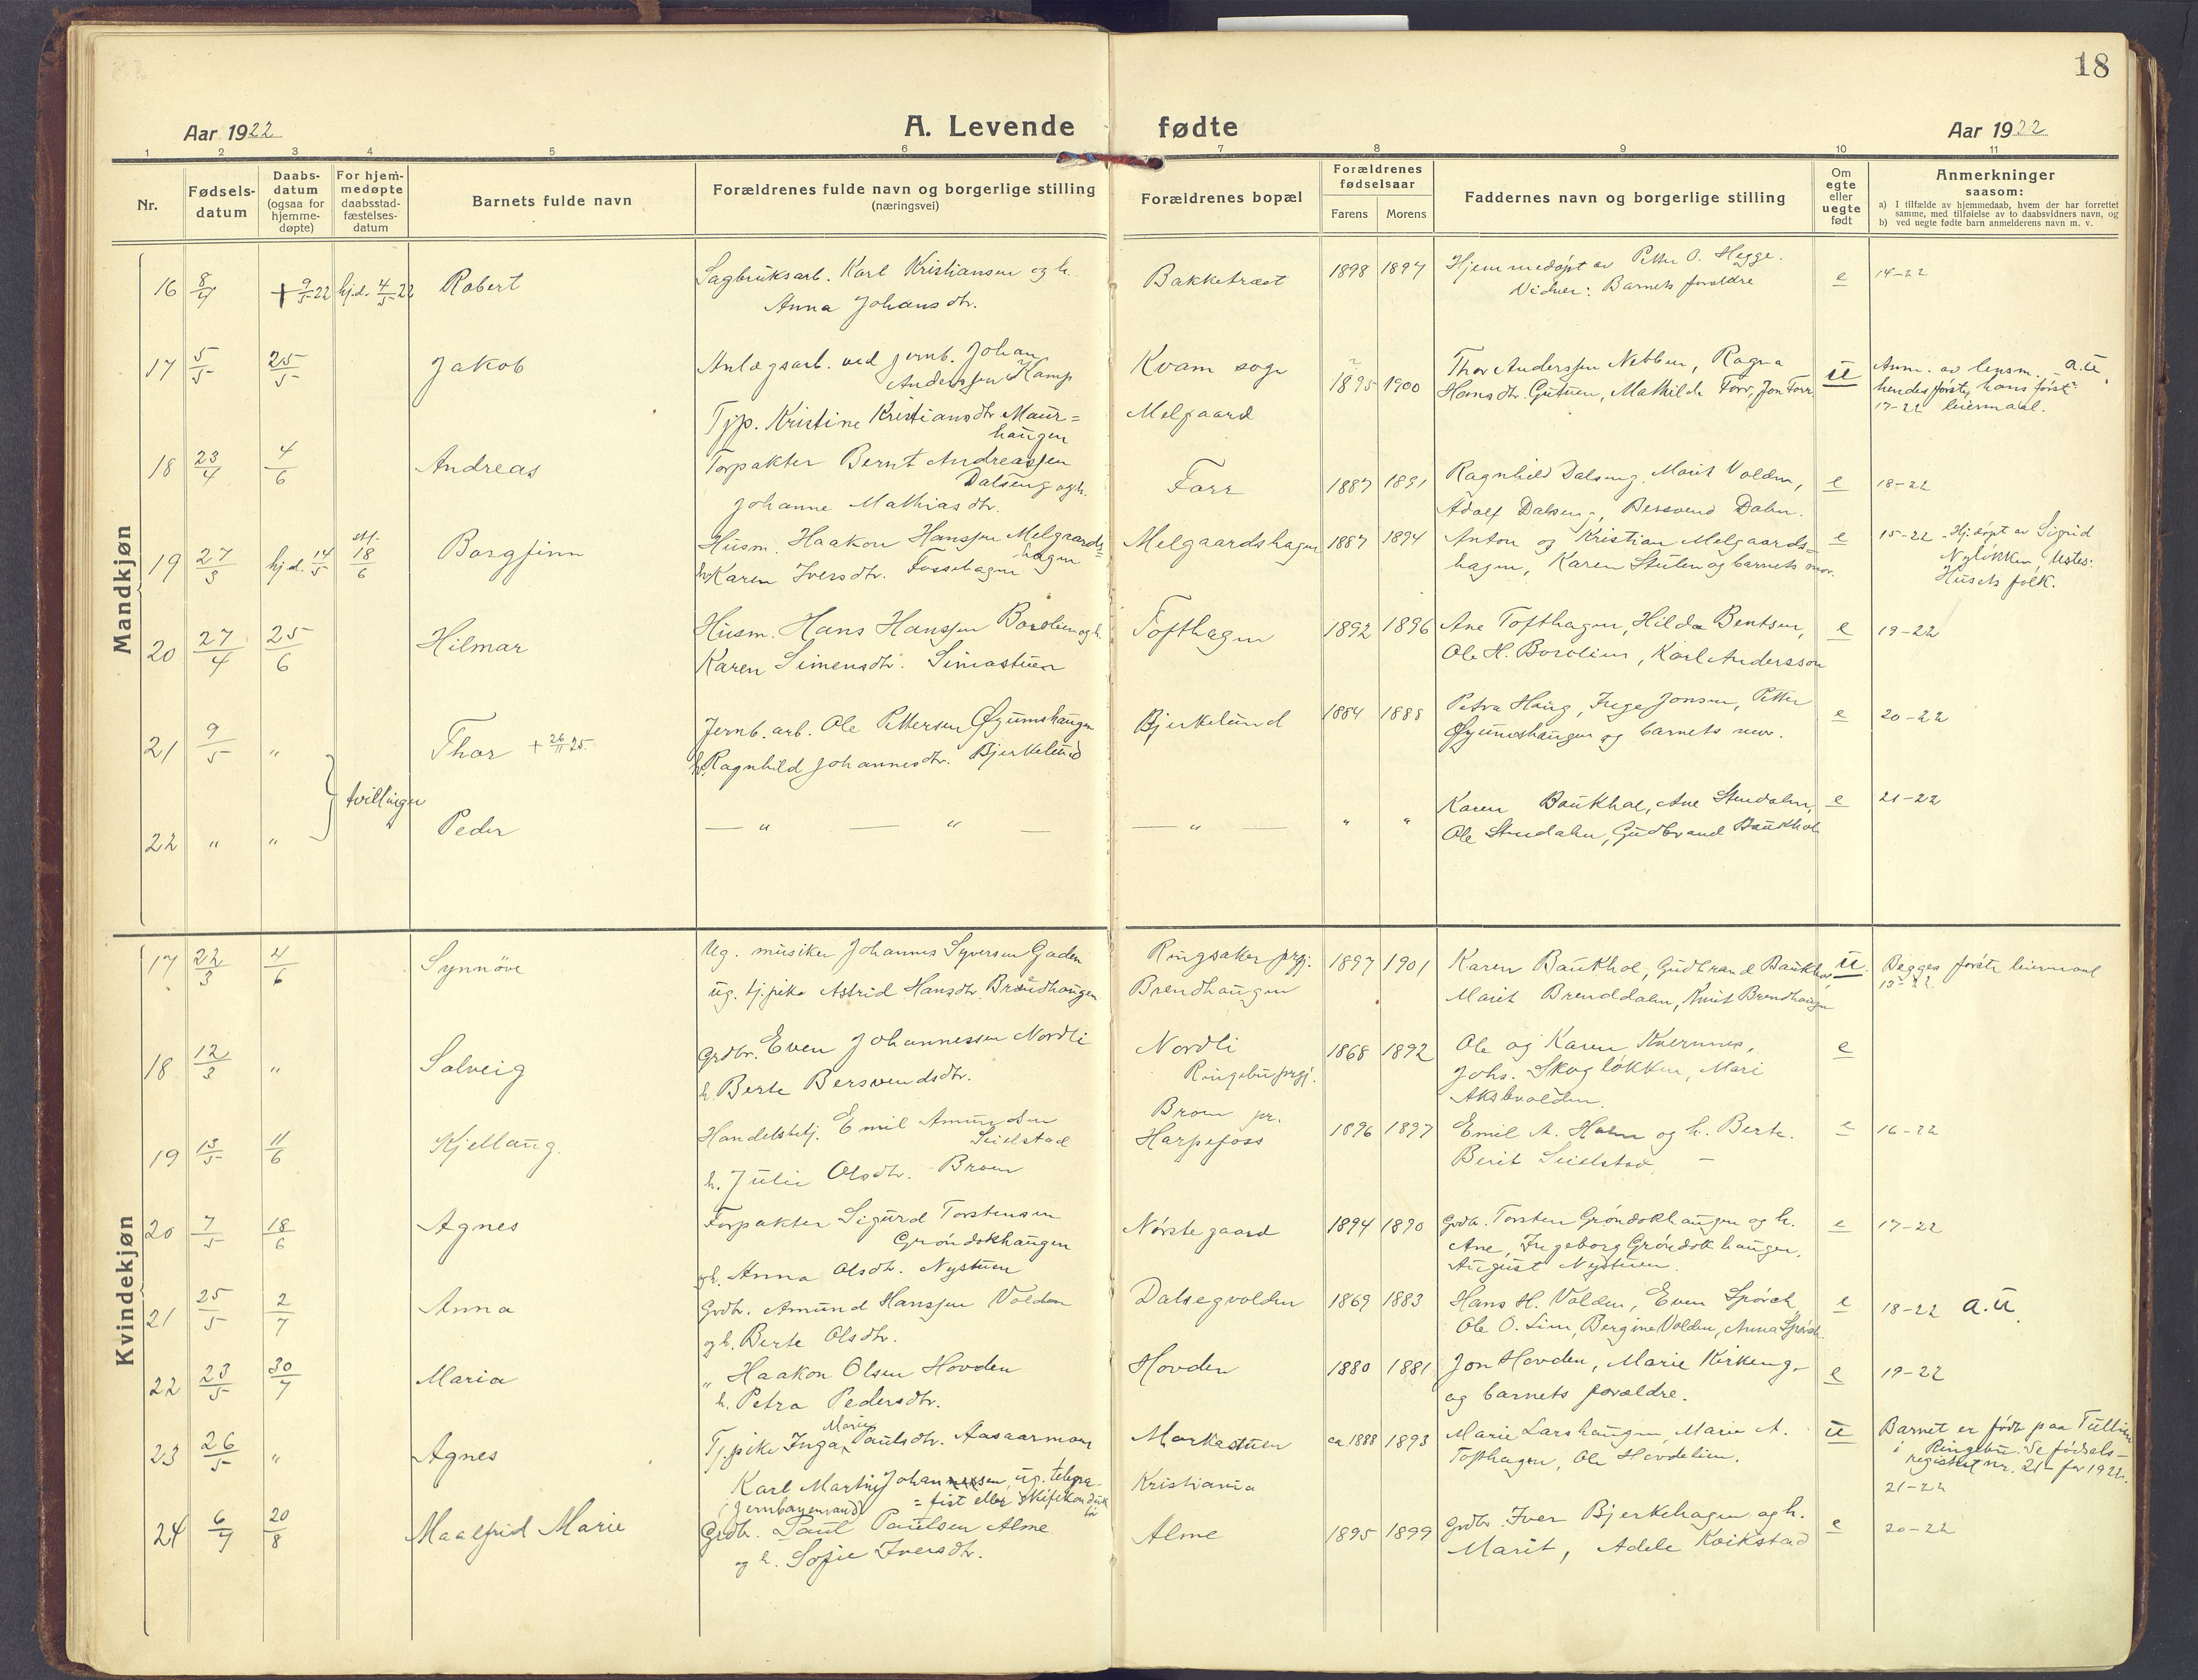 18
Aar 1922
A. Levende fødte
Aar 1922
1 2 3 4 5 6 7 8 9 10 11
Nr.
Fødsels-
datum
Daabs-
datum
(ogsaa for
hjemme-
døpte)
For hjem-
medøpte
daabsstad-
fæstelses-
datum
Barnets fulde navn
Forældrenes fulde navn og borgerlige stilling
(næringsvei)
Forældrenes bopæl
Forældrenes
fødselsaar
Farens Morens
Faddernes navn og borgerlige stilling
Om
egte
eller
uegte
født
Anmerkninger
saasom:
a) I tilfælde av hjemmedaab, hvem der har forrettet
samme, med tilføielse av to daabsvidners navn, og
b) ved uegte fødte barn anmelderens navn m. v.
Mandkjøn
16 8/4 + 9/5-22 hj.d. 4/5-22 Robert
Sagbruksarb. Karl Kristiansen og h.
Anna Johansdtr.
Bakketræet 1898 1897
Hjemmedøpt av Petter O. Hegge.
Vidner: Barnets forældre
e 14-22
17 5/5 25/5 Jakob
Anlægsarb. ved jernb. Johan
Anderssen Kamp
Tjp. Kristine Kristiansdtr. Maur=
haugen
Kvam sogn
Melgaard
1895 1900
Thor Anderssen Nebben, Ragna
Hansdtr. Gutuen, Mathilde Forr, Jon Forr
u
Anm. av lensm. a.u.
hendes første, hans første
17-22 leiermaal.
18 23/4 4/6 Andreas
Forpakter Bernt Andreassen
Dalseng og h.
Johanne Mathiasdtr.
Forr 1887 1891
Ragnhild Dalseng, Marit Volden,
Adolf Dalseng, Bersvend Dalen.
e 18-22
19 27/3 hj.d. 14/5 st. 18/6 Borgfinn
Husm. Haakon Hanssen Melgaards=
hagen
h. Karen Iversdtr. Fossehagen
Melgaardshagen 1887 1894
Anton og Kristian Melgaards=
hagen, Karen Stuten og barnets mor.
e
15-22 Hj.døpt av Sigrid
Nyløkken, testes:
Husets folk.
20 27/4 25/6 Hilmar
Husm. Hans Hanssen Borolien og h.
Karen Simensdtr. Simastuen
Tofthagen 1892 1896
Ane Tofthagen, Hilda Bentsen,
Ole H. Borolien, Karl Andersson
e 19-22
21 9/5 " Thor + 26/11 25.
Jernb.arb. Ole Pettersen Øyumshaugen
h. Ragnhild Johannesdtr. Bjerkelund
Bjerkelund 1884 1888
Petra Haug, Inga Jonsen, Petter
Øyumshaugen og barnets mor.
e 20-22
tvillinger
22 " " Peder
— " — " —
— " —
" "
Karen Baukhol, Ane Stendalen,
Ole Stendalen, Gudbrand Baukhol
e 21-22
Kvindekjøn
17 22/3 4/6 Synnöve
Ug. musiker Johannes Syversen Gaden
ug. tj.pike Astrid Hansdtr. Brændhaugen
Ringsaker prgj.
Brendhaugen
1897 1901
Karen Baukhol, Gudbrand Baukhol,
Marit Brenddalen, Knut Brendhaugen
u.
Begges første leiermaal
18 12/3 " Solveig
Grdbr. Even Johannessen Nordli
h. Berte Bersvendsdtr.
Nordli
Ringebu prgj.
1868 1892
Ole og Karen Kvernnes,
Johs. Skogløkken, Mari
Aksbvolden.
e
19 13/5 11/6 Kjellaug.
Handelsbetj. Emil Amundsen
Seielstad
h. Julie Olsdtr. Broen
Broen pr.
Harpefoss
1896 1897
Emil A. Holen og h. Berte.
Berit Seielstad. —
e 16-22
20 7/5 18/6 Agnes
Forpakter Sigurd Torstensen
Gröndokhaugen
og h. Anna Olsdtr. Nystuen
Nørstegaard 1894 1890
Grdbr. Torsten Gröndokhaugen og h.
Ane, Ingeborg Gröndokhaugen,
August Nystuen.
e 17-22
21 25/5 2/7 Anna
Grdbr. Amund Hanssen Volden
og h. Berte Olsdtr.
Dalsegvolden 1869 1883
Hans H. Volden, Even Spörck
Ole O. Lien, Bergine Volden, Anna Spörck.
e 18-22 a.u.
22 23/5 30/7 Maria
" Haakon Olsen Hovden
h. Petra Pedersdtr.
Hovden 1880 1881
Jon Hovden, Marie Kirkeng
og barnets forældre.
e 19-22
23 26/5 " Agnes
Tj.pike Inga Marie Paulsdtr. Aasaarmoen
Karl Martin Johannessen, ug. telegra-
(Jernbanemand) = fist eller
Markestuen
Kristiania
ca 1888 1893
Marie Larshaugen, Marie A.
Tofthagen, Ole Hovdelien.
u
Barnet er født paa Tullien
i Ringebu. Se fødsels-
registret nr. 21 for 1922.
21-22
24 6/7 20/8 Maalfrid Marie
Grdbr. Paul Paulsen Alme
og h. Sofie Iversdtr.
Alme 1895 1899
Grdbr. Iver Bjerkehagen og h.
Marit, Adele Kvikstad
e 20-22